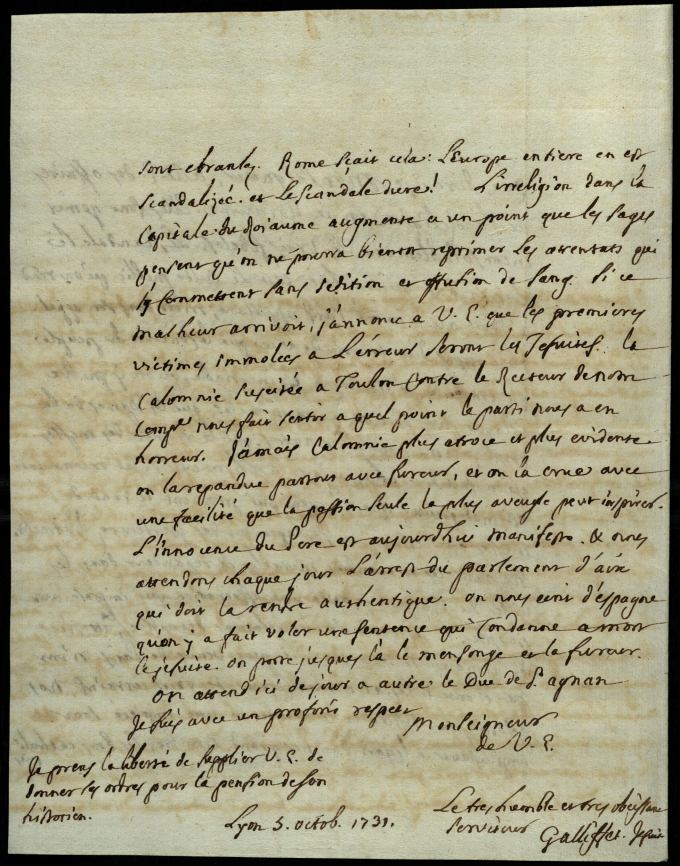 sont ebranlez. Rome sçait cela: L'Europe entiere en est
scandalizée. et Le scandale dure! L'irreligion dans la
Capitale du Roiaume augmente a un point que les sages
pensent qu'on ne pourra bientot reprimer les attentats qui
s'y commettent sans sedition et effusion de sang. Si ce
malheur arrivoit, j'annonce a V. E. que les premieres
victimes immolées a L'erreur seront les Jesuites. la
Calomnie suscitée a Toulon contre le Recteur de notre
Comp.e nous fait sentir a quel point le parti nous a en
horreur. Jamais Calomnie plus atroce et plus evidente.
on la repandue partout avec fureur, et on la crue avec
une facilité que la passion seule la plus aveugle peut inspirer.
L'innocence du Pere est aujourdhui manifeste. & nous
attendons chaque jour L'arrest du parlement d'aix
qui doit la rendre authentique. on nous ecrit d'espagne
qu'on y a fait voler une sentence qui Condanne a mort
le jesuite. on porte jusques là le mensonge et la fureur.
On attend ici de jour a autre le Duc de S.t agnan
Je suis avec un profond respect
Monseigneur
de V. E.
Je prens la liberté de supplier V. E. de
donner ses ordres pour la pension de son
historien.
Lyon 5. octob. 1731.
Le tres humble et tres obeissant
serviteur
Galliffet. Jesuite